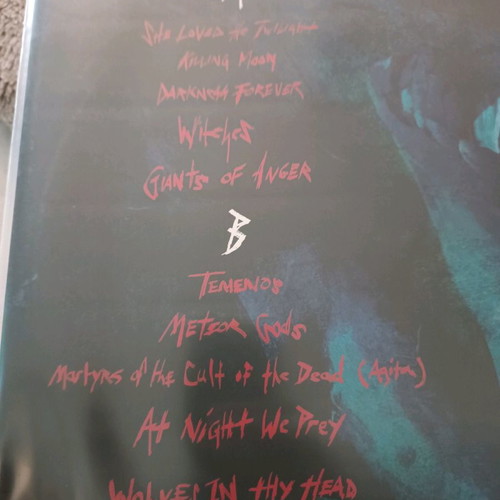 She Loved the Twilight
Killing Moon
Darkness Forever
Witches
Giants of Anger
B
Temenos
Meteor Gods
Martyrs of the Cult of the Dead (Agitor)
At Night We Prey
Wolves in Thy Head